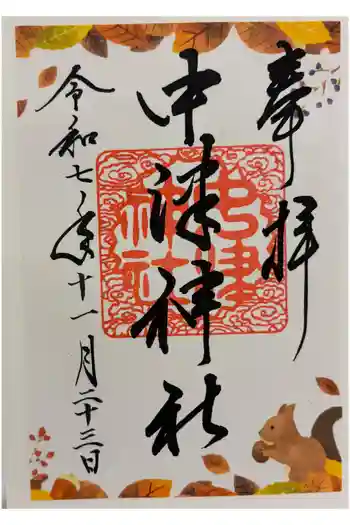 奉拝
中津神社
中津神社
令和七年十一月二十三日